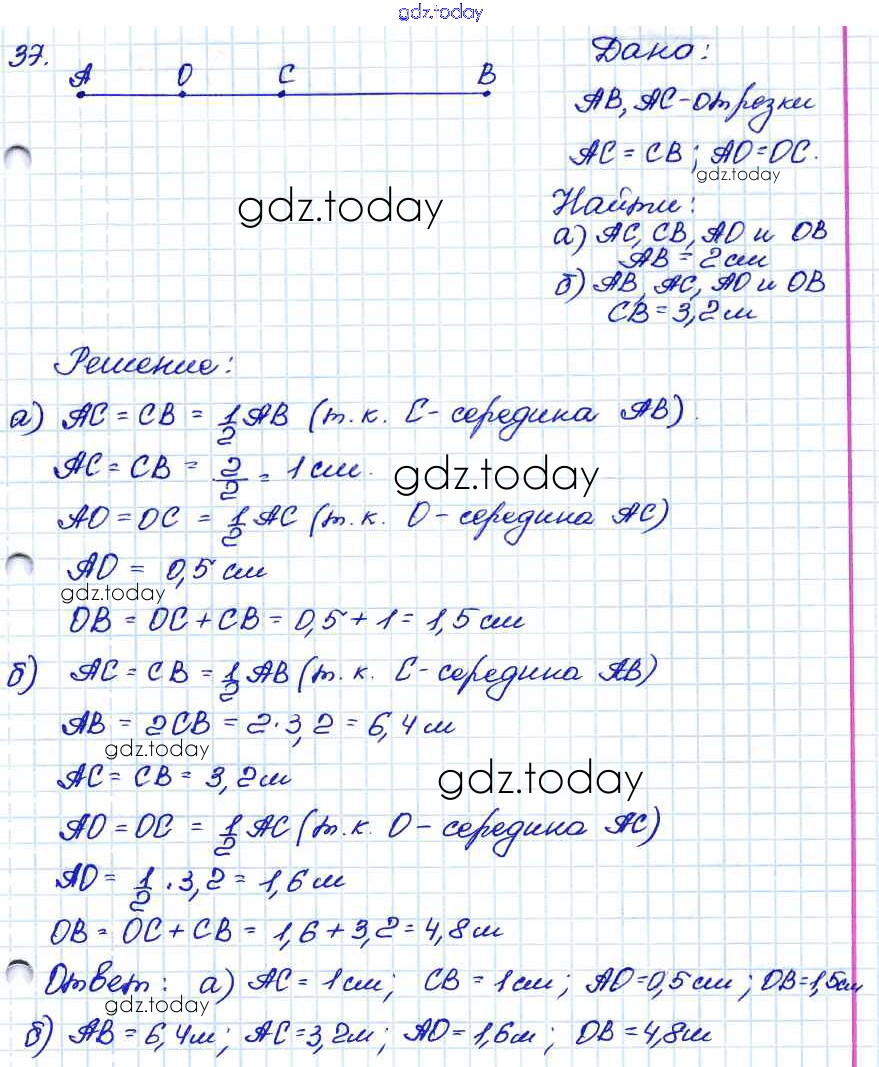 gdz.today
37.
A O C B
Дано:
AB, AC - отрезки
AC = CB; AO = OC.
gdz.today
gdz.today
Найти:
а) AC, CB, AO и OB
AB = 2 см
б) AB, AC, AO и OB
CB = 3,2 м
Решение:
а) AC = CB = 1/2 AB (т.к. C - середина AB).
AC = CB = 2/2 = 1 см.
gdz.today
AO = OC = 1/2 AC (т.к. O - середина AC)
AO = 0,5 см
gdz.today
OB = OC + CB = 0,5 + 1 = 1,5 см
б) AC = CB = 1/2 AB (т.к. C - середина AB)
AB = 2CB = 2 · 3,2 = 6,4 м
gdz.today
AC = CB = 3,2 м
gdz.today
AO = OC = 1/2 AC (т.к. O - середина AC)
AO = 1/2 · 3,2 = 1,6 м
OB = OC + CB = 1,6 + 3,2 = 4,8 м
Ответ: а) AC = 1 см; CB = 1 см; AO = 0,5 см; OB = 1,5 см
gdz.today
б) AB = 6,4 м; AC = 3,2 м; AO = 1,6 м; OB = 4,8 м